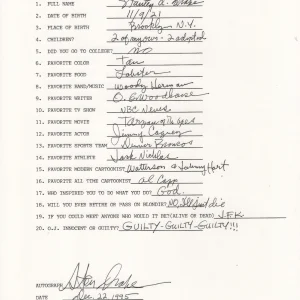 1. FULL NAME Stanley A. Drake
2. DATE OF BIRTH 11/9/21
3. PLACE OF BIRTH Brooklyn N.Y.
4. CHILDREN? 2 of my own - 2 adopted
5. DID YOU GO TO COLLEGE? NO
6. FAVORITE COLOR Tan
7. FAVORITE FOOD Lobster
8. FAVORITE BAND/MUSIC Woody Herman
9. FAVORITE WRITER P.G. Wodhouse
10. FAVORITE TV SHOW NBC News
11. FAVORITE MOVIE Tarzan of the Apes
12. FAVORITE ACTOR Jimmy Cagney
13. FAVORITE SPORTS TEAM Denver Broncos
14. FAVORITE ATHLETE Jack Nicklas
15. FAVORITE MODERN CARTOONIST Watterson & Johnny Hart
16. FAVORITE ALL TIME CARTOONIST Al Capp
17. WHO INSPIRED YOU TO DO WHAT YOU DO? God.
18. WILL YOU EVER RETIRE OR PASS ON BLONDIE? NO, I'll just die
19. IF YOU COULD MEET ANYONE WHO WOULD IT BE? (ALIVE OR DEAD) J.F.K.
20. O.J. INNOCENT OR GUILTY? GUILTY-GUILTY-GUILTY!!!
AUTOGRAPH Stan Drake
DATE Dec. 22, 1995